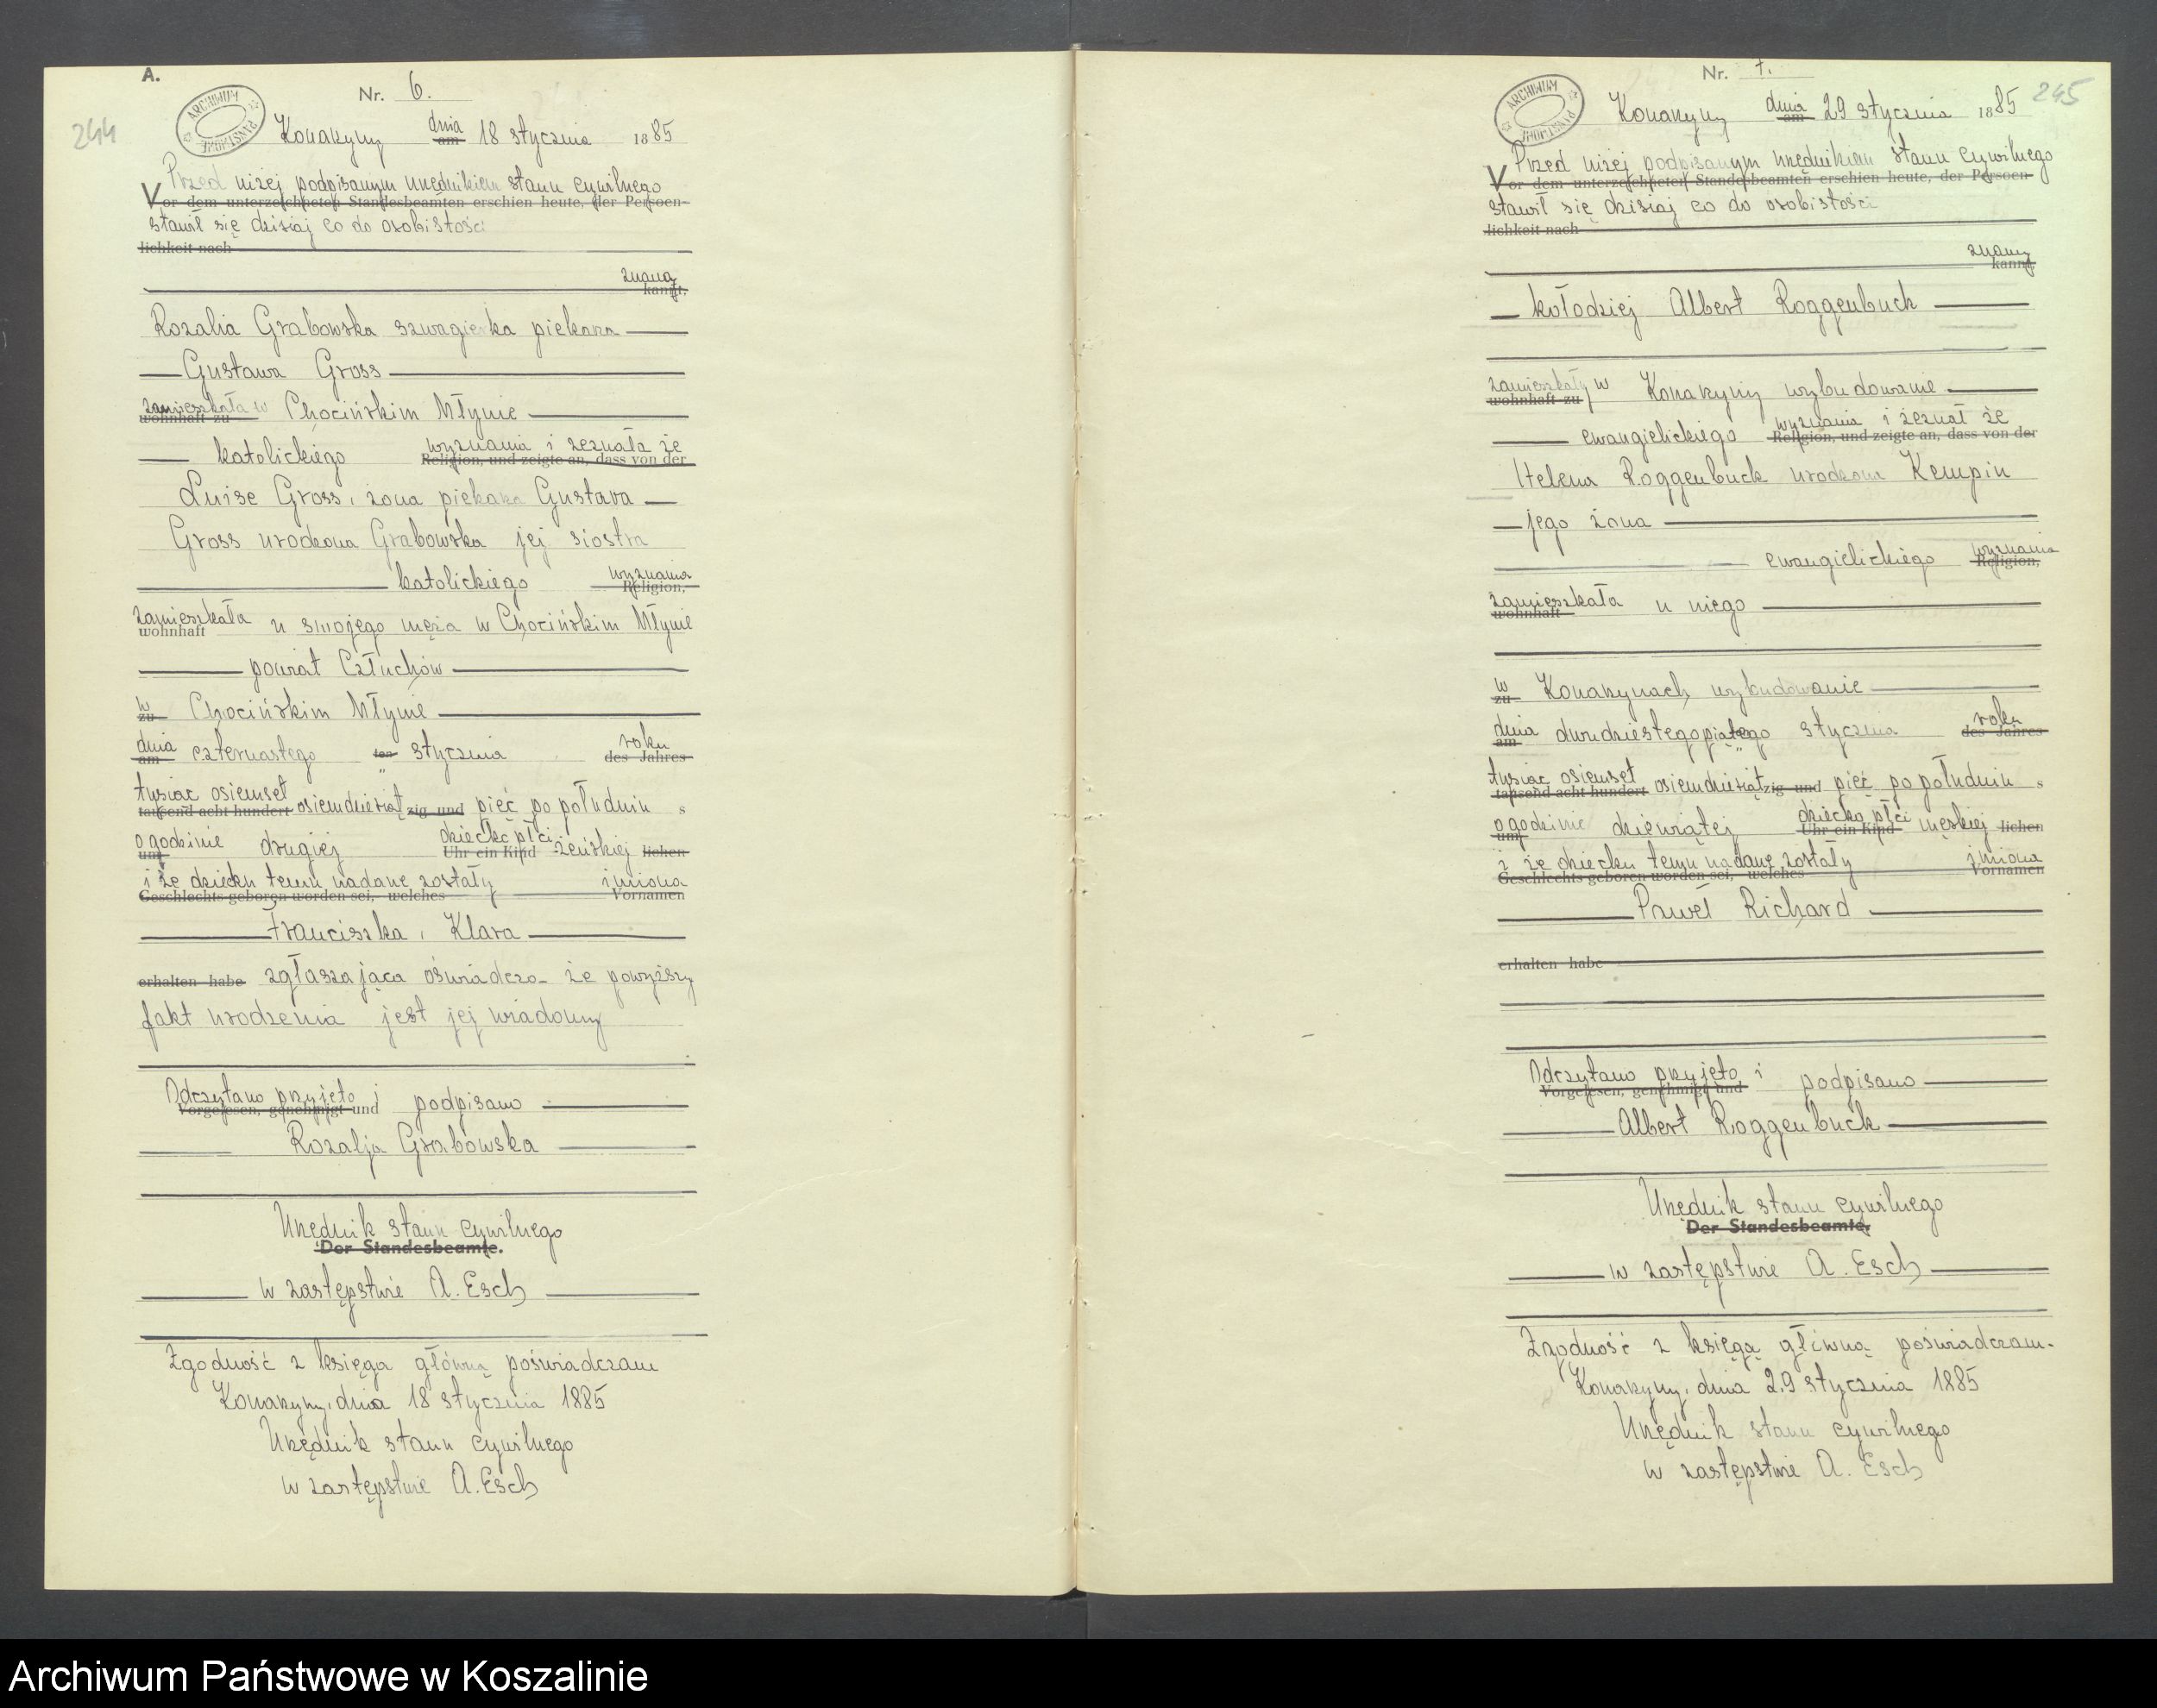 A.
Nr. 6.
244
ARCHIWUM PAŃSTWOWE
Konarzyny dnia am 18 stycznia 1885
Przed niżej podpisanym urzędnikiem stanu cywilnego
Vor dem unterzeichneten Standesbeamten erschien heute, der Persoen-
stawił się dzisiaj co do osobistości
lichkeit nach
znana
kannt,
Rozalia Grabowska szwagierka piekarza
Gustawa Gross
zamieszkała w Chocińskim Młynie
wohnhaft zu
katolickiego wyznania i zeznała że
Religion, und zeigte an, dass von der
Luise Gross, żona piekarza Gustava
Gross urodzona Grabowska jej siostra
katolickiego wyznania
Religion,
zamieszkała u swojego męża w Chocińskim Młynie
wohnhaft
powiat Człuchów
w Chocińskim Młynie
zu
dnia czternastego ten stycznia roku
am des Jahres
tysiąc osiemset osiemdziesiąt zig und pięć po południu s
tausend acht hundert
o godzinie drugiej dziecko płci żeńskiej lichen
um Uhr ein Kind
i że dziecku temu nadane zostały imiona
Geschlechts geboren worden sei, welches Vornamen
Franciszka, Klara
erhalten habe zgłaszająca oświadcza że powyższy
fakt urodzenia jest jej wiadomy
Odczytano przyjęto i podpisano
Vorgelesen, genehmigt und
Rozalja Grabowska
Urzędnik stanu cywilnego
Der Standesbeamte.
w zastępstwie A. Esch
Zgodność z księgą główną poświadczam
Konarzyny, dnia 18 stycznia 1885
Urzędnik stanu cywilnego
w zastępstwie A. Esch
Nr. 7.
245
ARCHIWUM PAŃSTWOWE
Konarzyny dnia am 29 stycznia 1885
Przed niżej podpisanym urzędnikiem stanu cywilnego
Vor dem unterzeichneten Standesbeamten erschien heute, der Persoen-
stawił się dzisiaj co do osobistości
lichkeit nach
znany
kannt,
kołodziej Albert Roggenbuck
zamieszkały w Konarzyny wybudowanie
wohnhaft zu
ewangielickiego wyznania i zeznał że
Religion, und zeigte an, dass von der
Helena Roggenbuck urodzona Kempin
jego żona
ewangielickiego wyznania
Religion,
zamieszkała u niego
wohnhaft
w Konarzynach wybudowanie
zu
dnia dwudziestegopiątego stycznia roku
am des Jahres
tysiąc osiemset osiemdziesiąt zig und pięć po południu s
tausend acht hundert
o godzinie dziewiątej dziecko płci męskiej lichen
um Uhr ein Kind
i że dziecku temu nadane zostały imiona
Geschlechts geboren worden sei, welches Vornamen
Paweł Richard
erhalten habe
Odczytano przyjęto i podpisano
Vorgelesen, genehmigt und
Albert Roggenbuck
Urzędnik stanu cywilnego
Der Standesbeamte.
w zastępstwie A. Esch
Zgodność z księgą główną poświadczam.
Konarzyny, dnia 29 stycznia 1885
Urzędnik stanu cywilnego
w zastępstwie A. Esch
Archiwum Państwowe w Koszalinie